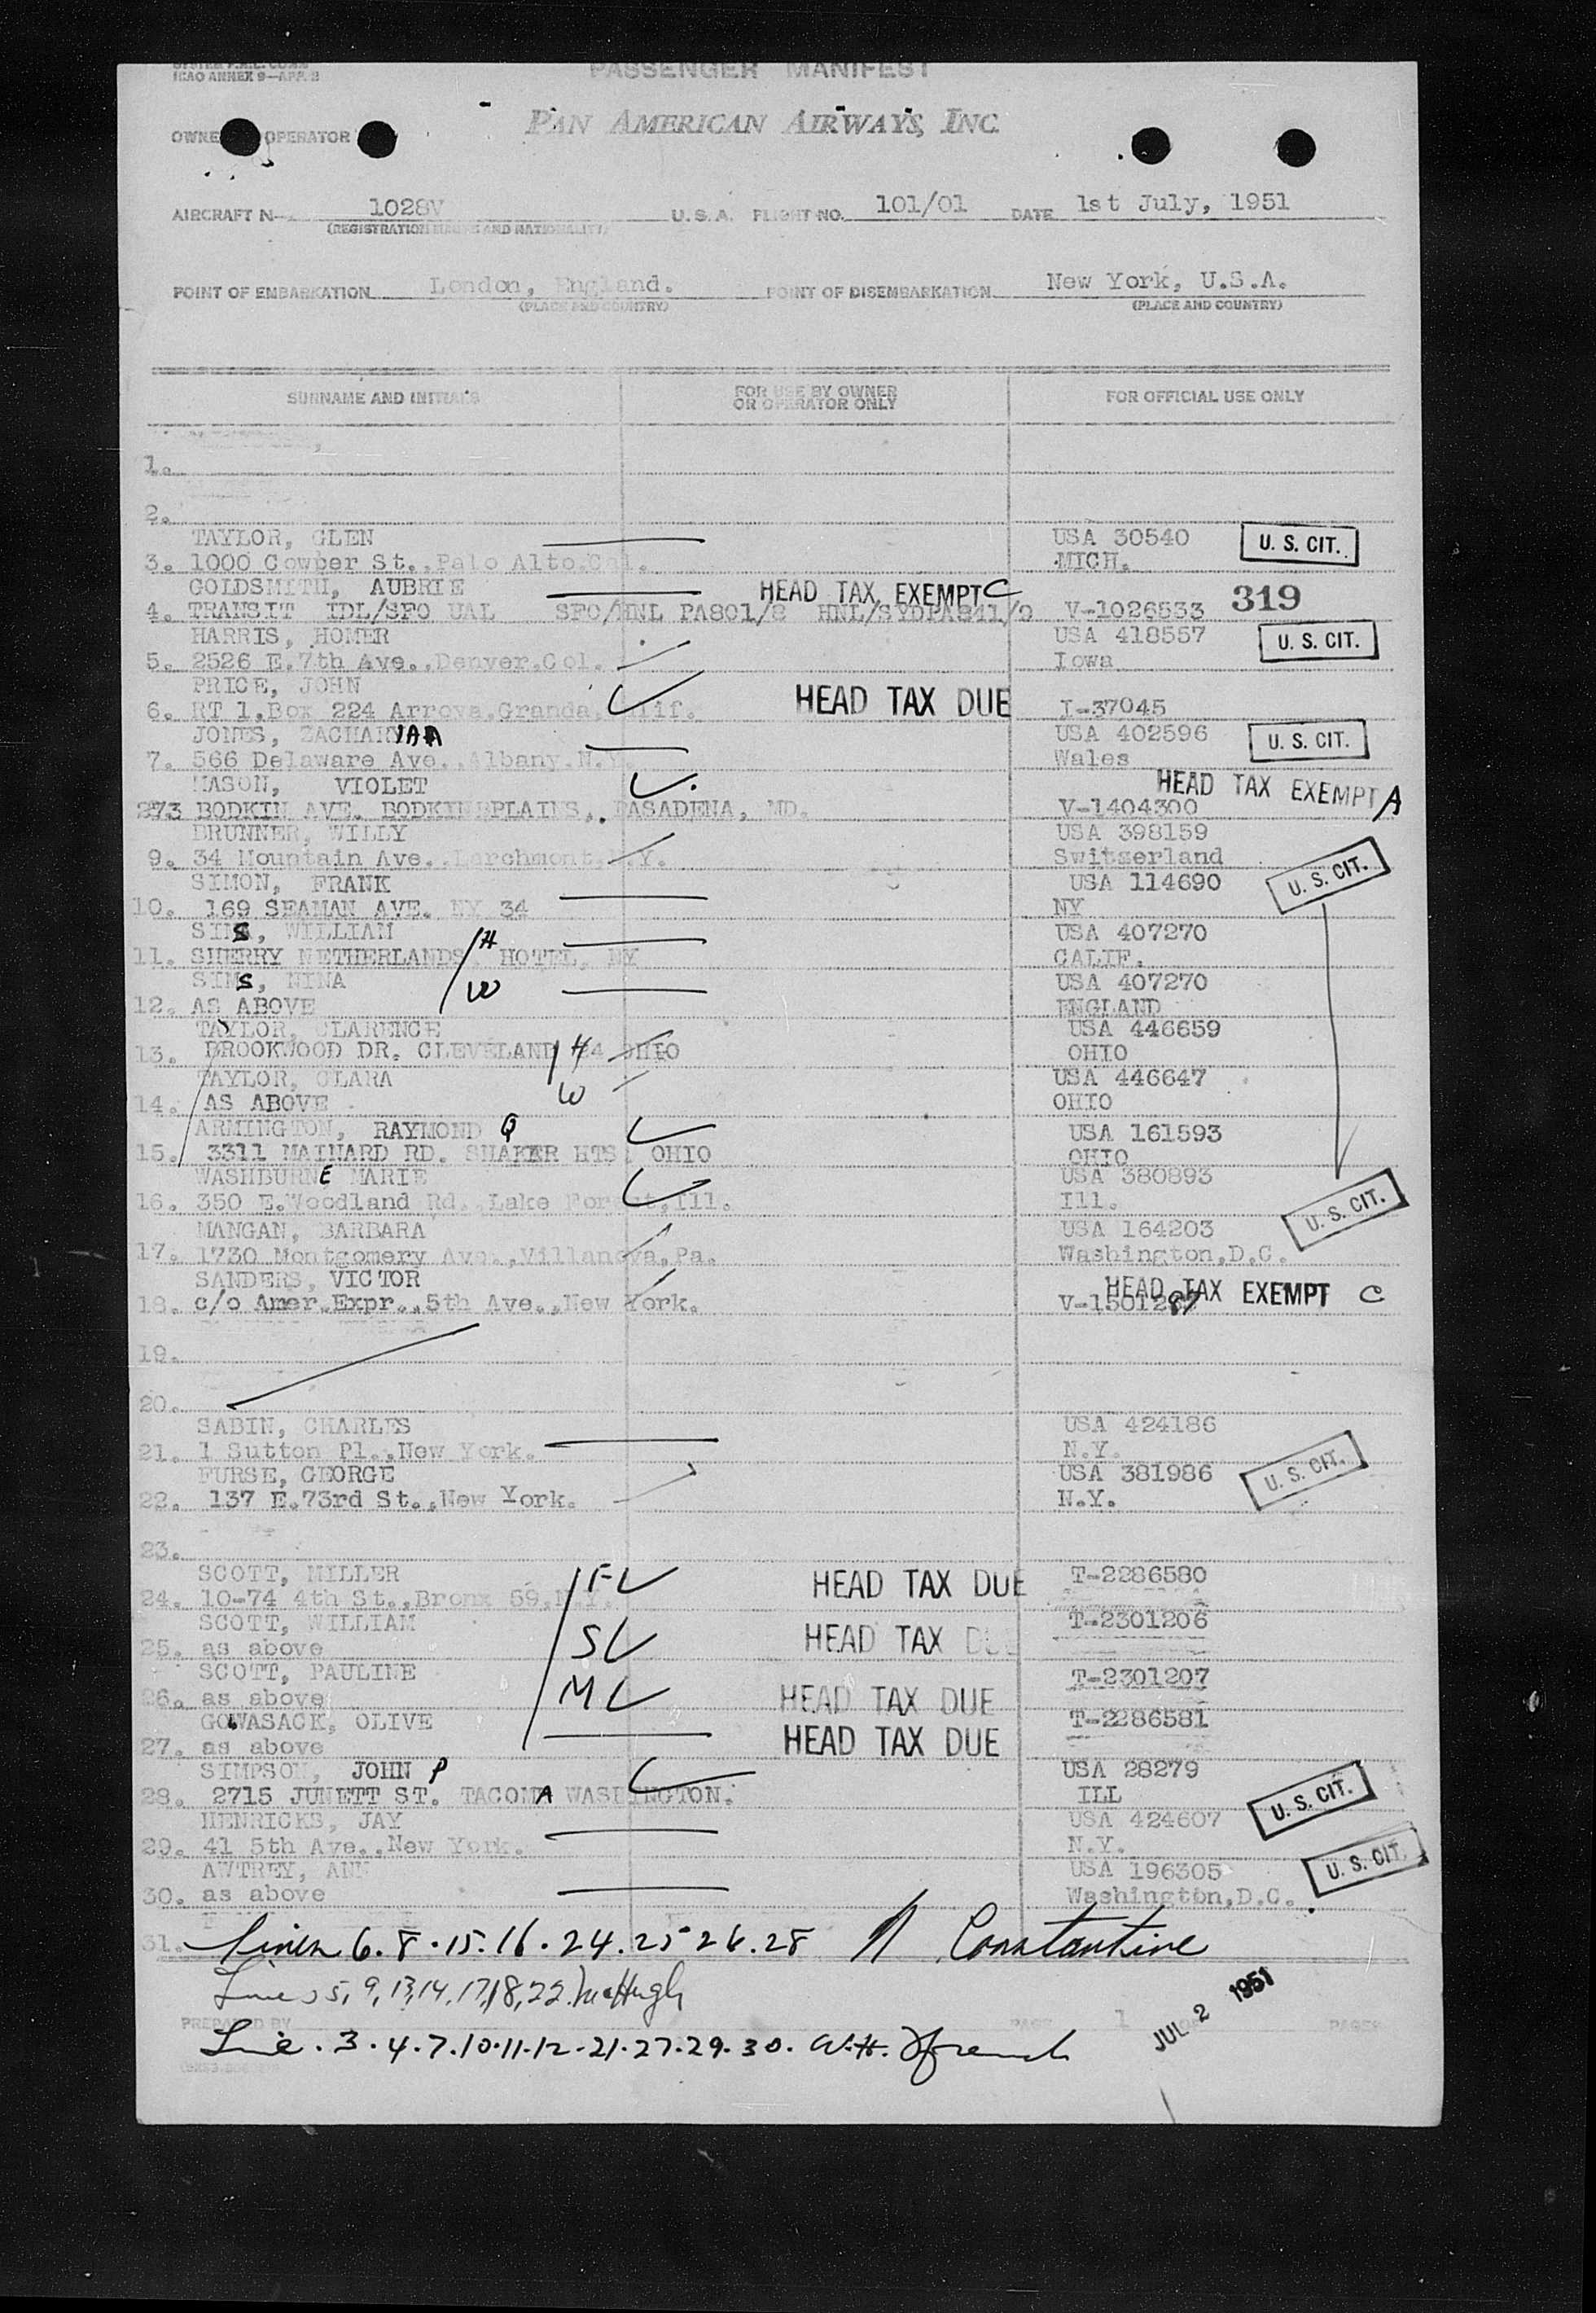 ICAO ANNEX 9—APP. 2
PASSENGER MANIFEST
OPERATOR
PAN AMERICAN AIRWAYS, INC.
AIRCRAFT 1028V U.S.A. FLIGHT NO. 101/01 DATE 1st July, 1951
(REGISTRATION MARKS AND NATIONALITY)
POINT OF EMBARKATION London, England. POINT OF DISEMBARKATION New York, U.S.A.
(PLACE AND COUNTRY) (PLACE AND COUNTRY)
SURNAME AND INITIALS FOR USE BY OWNER OR OPERATOR ONLY FOR OFFICIAL USE ONLY
1.
2.
TAYLOR, GLEN USA 30540 U. S. CIT.
3. 1000 Cowper St., Palo Alto, Cal. MICH.
GOLDSMITH, AUBRIE HEAD TAX EXEMPT C 319
4. TRANSIT IDL/SFO UAL SFO/HNL PA801/2 HNL/SYDPA841/ V-1026533
HARRIS, HOMER USA 418557 U. S. CIT.
5. 2526 E.7th Ave., Denver.Col. Iowa
PRICE, JOHN HEAD TAX DUE
6. RT 1, Box 224 Arroya, Granda, Calif. I-37045
JONES, ZACHARIAH USA 402596 U. S. CIT.
7. 566 Delaware Ave., Albany.N.Y. Wales
MASON, VIOLET HEAD TAX EXEMPT A
273 BODKIN AVE. BODKIN PLAINS, PASADENA, MD. V-1404300
BRUNNER, WILLY USA 398159
9. 34 Mountain Ave., Larchmont, N.Y. Switzerland
SIMON, FRANK USA 114690 U. S. CIT.
10. 169 SEAMAN AVE. NY 34 NY
SIMS, WILLIAM H USA 407270
11. SHERRY NETHERLANDS HOTEL, NY CALIF.
SIMS, NINA W USA 407270
12. AS ABOVE ENGLAND
TAYLOR, CLARENCE USA 446659
13. BROOKWOOD DR. CLEVELAND 24 OHIO H OHIO
TAYLOR, CLARA W USA 446647
14. AS ABOVE OHIO
ARMINGTON, RAYMOND Q USA 161593
15. 3311 MAINARD RD. SHAKER HTS. OHIO OHIO
WASHBURNE MARIE USA 380893
16. 350 E.Woodland Rd., Lake Forest, Ill. Ill. U. S. CIT.
MANGAN, BARBARA USA 164203
17. 1730 Montgomery Ave., Villanova, Pa. Washington, D.C.
SANDERS, VICTOR HEAD TAX EXEMPT C
18. c/o Amer.Expr., 5th Ave., New York. V-1501287
19.
20.
SABIN, CHARLES USA 424186
21. 1 Sutton Pl., New York. N.Y.
FURSE, GEORGE USA 381986 U. S. CIT.
22. 137 E.73rd St., New York. N.Y.
23.
SCOTT, MILLER F HEAD TAX DUE T-2286580
24. 10-74 4th St., Bronx 59, N.Y.
SCOTT, WILLIAM S HEAD TAX DUE T-2301206
25. as above
SCOTT, PAULINE M HEAD TAX DUE T-2301207
26. as above
GOWASACK, OLIVE HEAD TAX DUE T-2286581
27. as above
SIMPSON, JOHN P USA 28279
28. 2715 JUNETT ST. TACOMA WASHINGTON. ILL U. S. CIT.
HENRICKS, JAY USA 424607
29. 41 5th Ave., New York. N.Y.
AWTREY, ANN USA 196305 U. S. CIT.
30. as above Washington, D.C.
31. Lines 6. 8. 15. 16. 24. 25 26. 28 N Constantine
Lines 5, 9, 13, 14, 17, 18, 22. McHugh
PREPARED BY PAGE 1 PAGES JUL 2 1951
Line. 3. 4. 7. 10. 11. 12. 21. 27. 29. 30. W.H. French